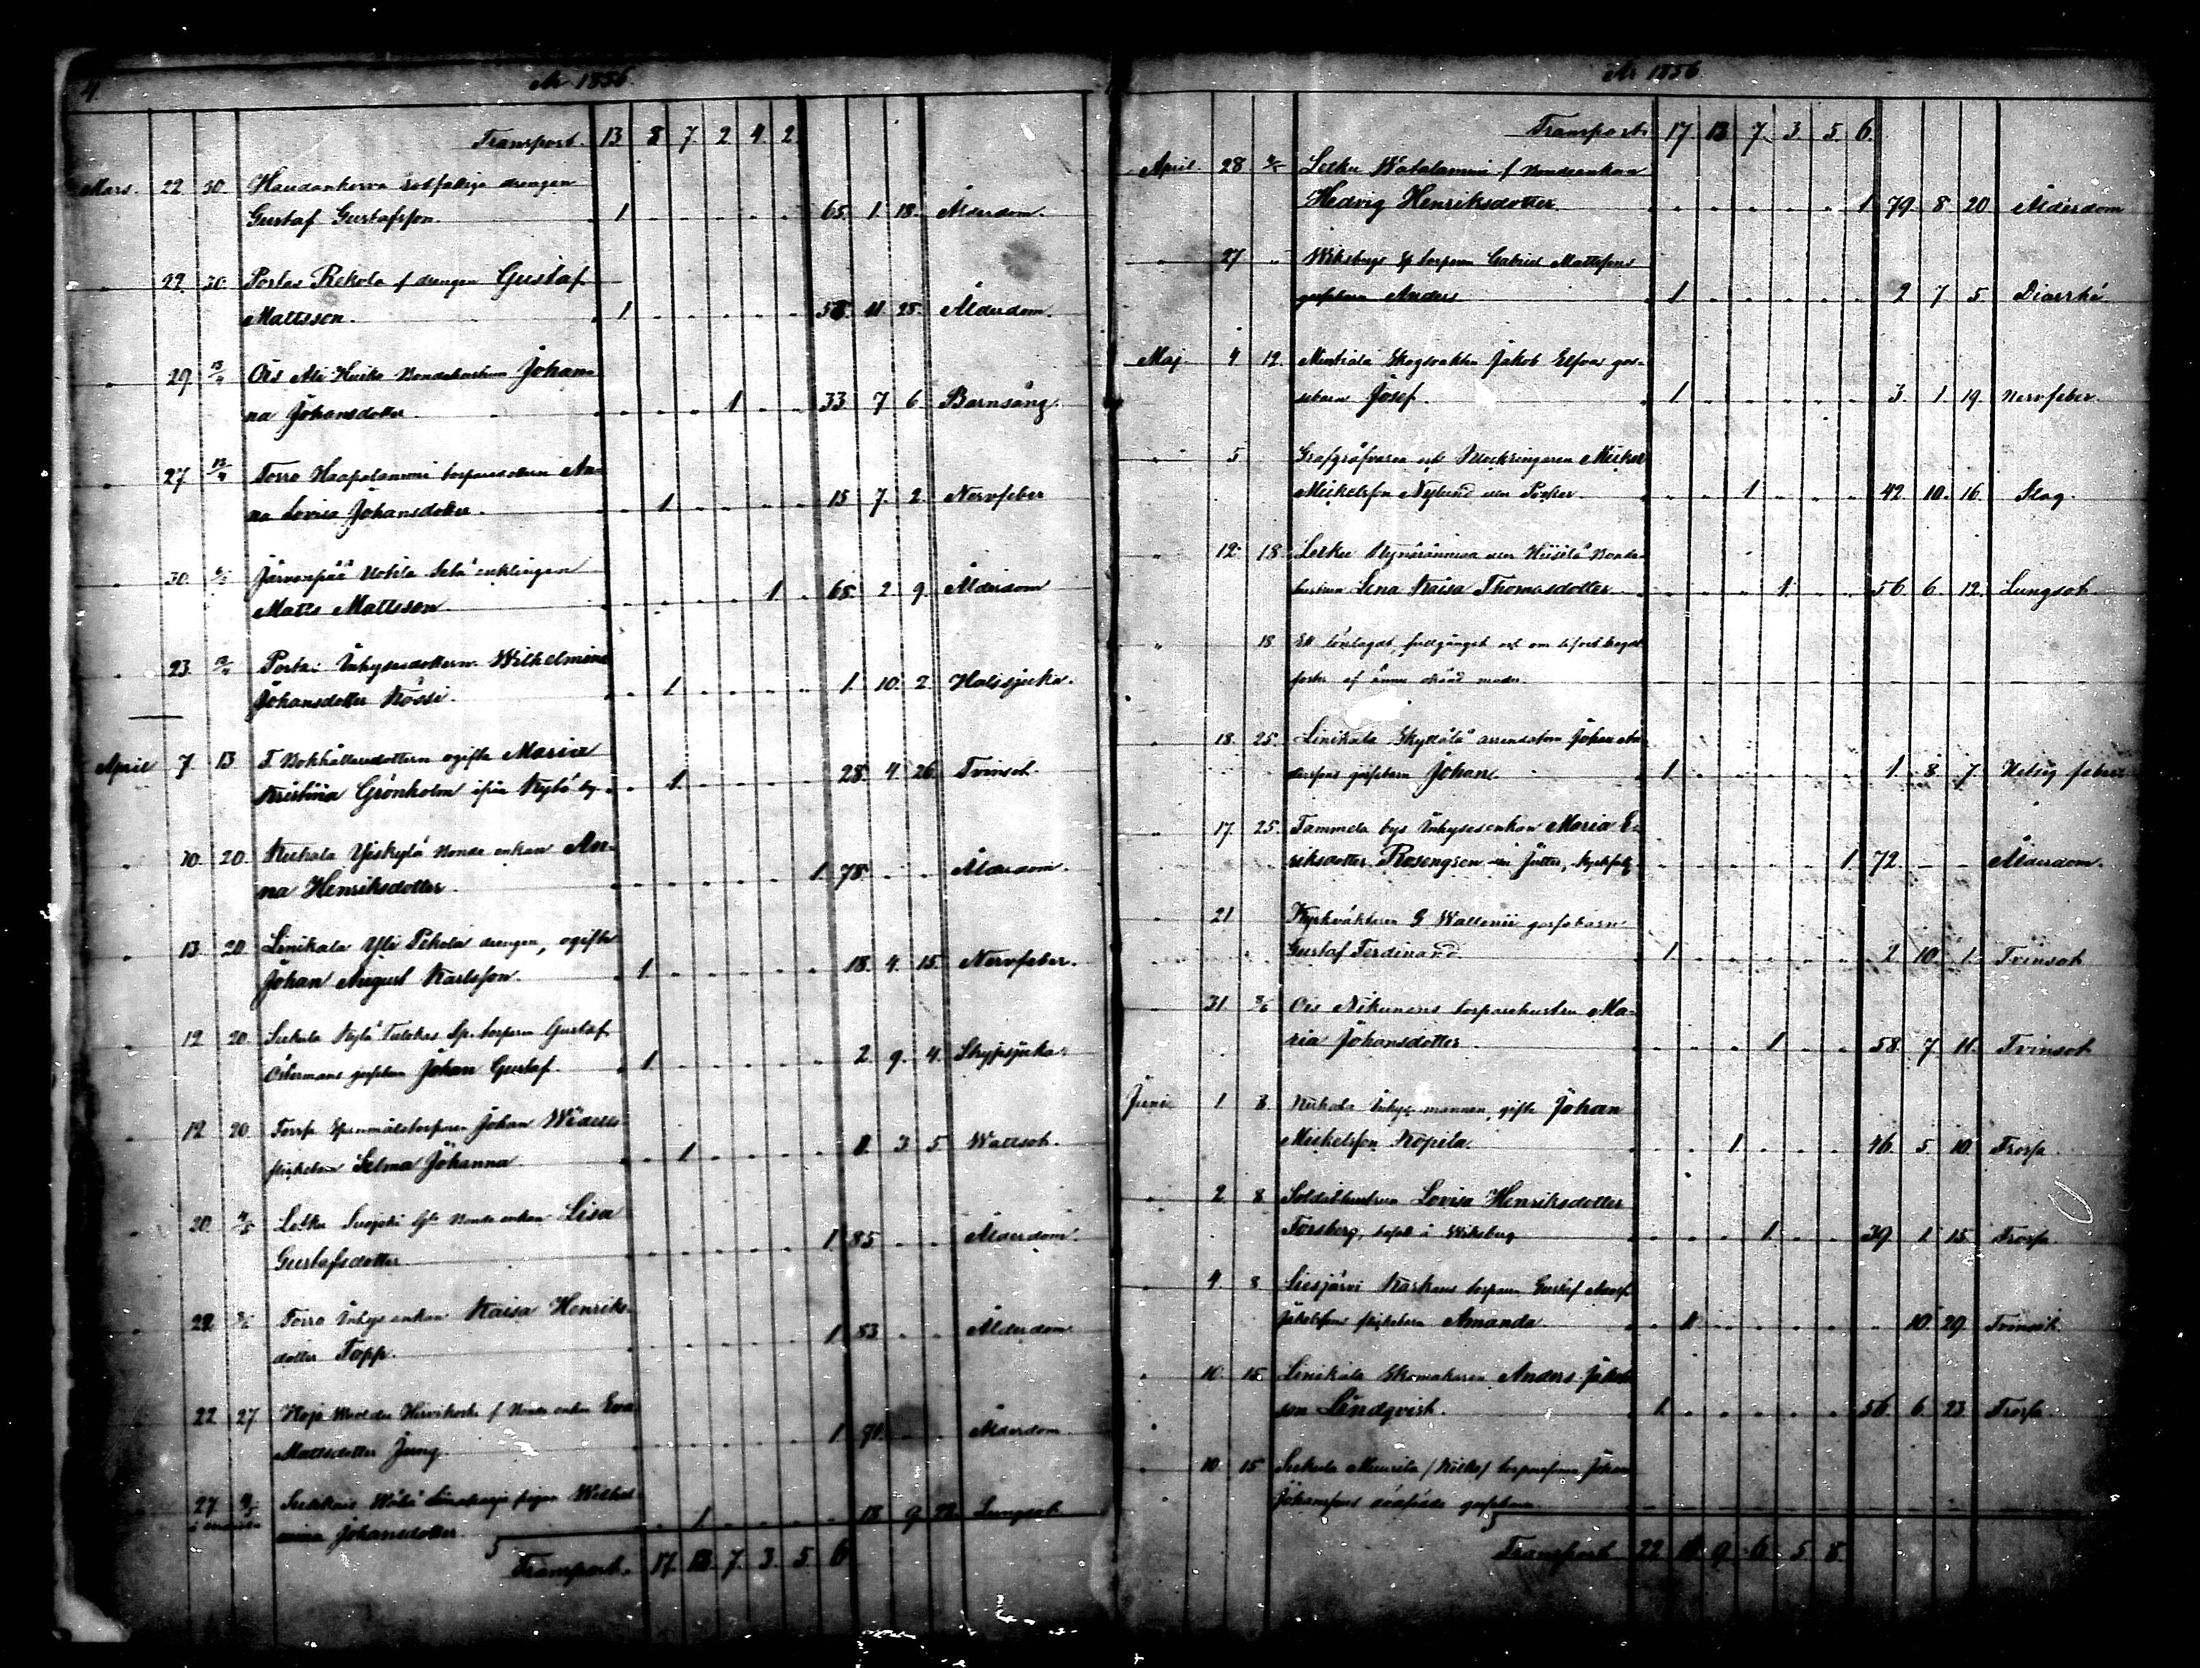 4. År 1856.
Transport. 13 8 7. 2 4. 2
Mars. 22 30. Haudankorva rotfattige drengen
Gustaf Gustafsson. 1 65. 1. 18. Ålderdom.
" 22. 30. Portas Rekola f drengen Gustaf
Mattsson. 1 58. 11. 25. Ålderdom.
" 29 13/4 Ois Ali Huika Bondehustrun Johan-
na Johansdotter. 1 33 7 6 Barnsäng.
" 27 13/4 Torro Haapalammi torparedottern An-
na Lovisa Johansdotter. 1 15 7. 2. Nervfeber
" 30. Järvenpää Uotila enklingen
Matts Mattsson. 1 65. 2 9. Ålderdom
" 23. Portas Inhysesdottern Wilhelmina
Johansdotter Kössi. 1 1. 10. 2. Halssjuka.
April 7 13 F. Bokhållaredottern ogifta Maria
Kristina Grönholm ifrån Kylä by. 1 28. 4 26. Tvinsot.
" 10. 20. Kuhala Yliskylä Bonde enkan An-
na Henriksdotter. 1. 78. " " Ålderdom.
" 13. 20. Linikala Yli Pekola drengen, ogifte
Johan August Karlsson. 1 18. 4. 15. Nervfeber.
" 12 20 Sukula Kylä Tulokas Sp. torparen Gustaf
Östermans gossebarn Johan Gustaf. 1 2. 9. 4. Strypsjuka.
" 12 20 Torro Johan Widells
flickebarn Selma Johanna. 1 3 5. Wattsot.
" 20. 4/5 Letku Susijoki Bonde enkan Lisa
Gustafsdotter. 1. 85 " " Ålderdom.
" 22. Torro Inhyses enkan Kaisa Henriks-
dotter Topp. 1 83 " " Ålderdom
22 27 Kojo f Bonde enkan Eva
Mattsdotter Jung. 1. 91. Ålderdom.
27 4/5 pigan Wilhel-
mina Johansdotter. 1. 18 9 22. Lungsot.
Transport. 17. 13. 7. 3. 5. 6
År 1856
Transport. 17 13 7. 3. 5. 6.
April. 28 4/5 Letku Watalammi f Bondeenkan
Hedvig Henriksdotter. 1. 79. 8. 20 Ålderdom
" 27 " Wiksbergs Sp torparen Gabriel Mattssons
gossebarn Anders 1 2 7 5 Diarrhé
Maj 4 12. Mustiala Skogvakten Jakob Elfvas gos-
sebarn Josef. 1 3. 1. 19. Nervfeber.
" 5 Grafgräfvaren och Klockringaren Mickel
Mickelsson Nylund 1 42 10. 16. Slag.
" 12. 18 Letku Bonde-
hustrun Lena Kaisa Thomasdotter 1. 56. 6. 12. Lungsot.
" 18 Ett fullgånget
foster af ännu okänd moder.
" 18. 25. Linikala Skyttälä arrendatorn Johan An-
derssons gossebarn Johan. 1 1. 8 7. Hetsig feber
" 17. 25. Tammela bys Inhysesenkan Maria E-
riksdotter Rosengren 1 72. Ålderdom.
" 21 Kyrkväktaren G Wallenii gossebarn
Gustaf Ferdinand 1 2 10. 1. Tvinsot
" 31. Ois Nikunens torparehustru Ma-
ria Johansdotter 1 58. 7 11. Tvinsot
Juni 1 8 Kuhala Inhyses mannen, gifte Johan
Mickelsson Kopila. 1 46. 5. 10. Frossa.
" 2. 8 Soldathustrun Lovisa Henriksdotter
Forsberg, Wiksberg 1. 39 1 15. Frossa.
4. 8 Liesjärvi torparen Gustaf Adolf
Jakobssons flickebarn Amanda. 1 10. 29. Tvinsot.
" 10. 15. Linikala Skomakaren Anders Jakob-
son Lindqvist. 1. 56. 6. 23 Frossa.
10. 15 Sukula Johan
Johanssons gossebarn.
Transport 22 14 9. 6. 5 8.